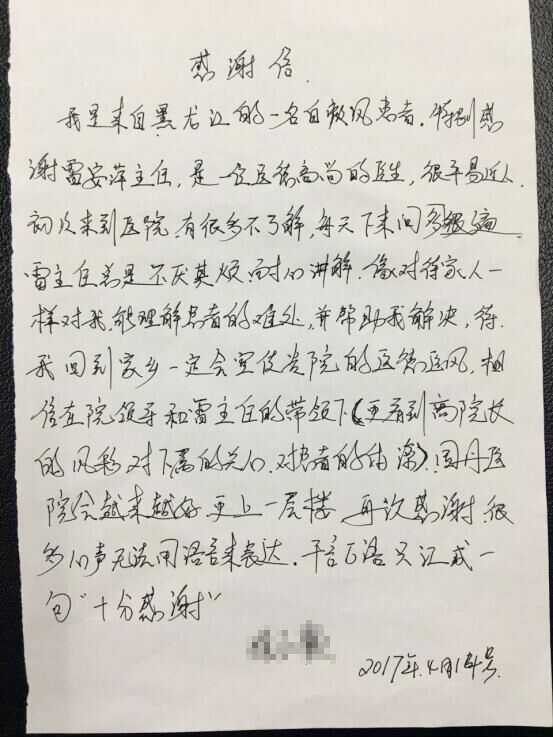 感谢信.
我是来自黑龙江的一名白癜风患者.特别感
谢雷安萍主任,是一位医德高尚的医生,很平易近人.
初次来到医院.有很多不了解,每天下来问多遍.
雷主任总是不厌其烦.耐心讲解.像对待家人一
样对我,能理解患者的难处,并帮助我解决,待.
我回到家乡一定会宣传贵院的医德医风,相
信在院领导和雷主任的带领下(更看到高院长
的风彩对下属的关心.对患者的)国丹医
院会越来越好.更上一层楼.再次感谢.很
多心声无法用语言来表达.千言万语只汇成一
句"十分感谢"
2017年.4月14号.